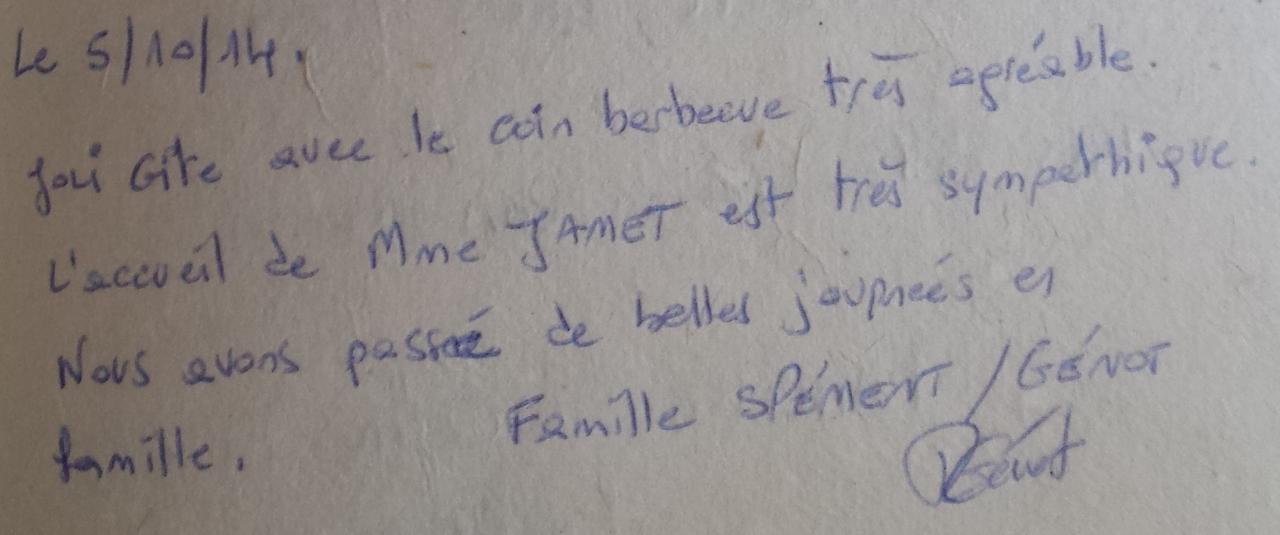 Le 5/10/14.
Joli Gîte avec le coin berbecue très agréable.
L'accueil de Mme JAMET est très sympathique.
Nous avons passé de belles journeés en
famille.
Famille SPÉMENT / GÉNOT
Génot